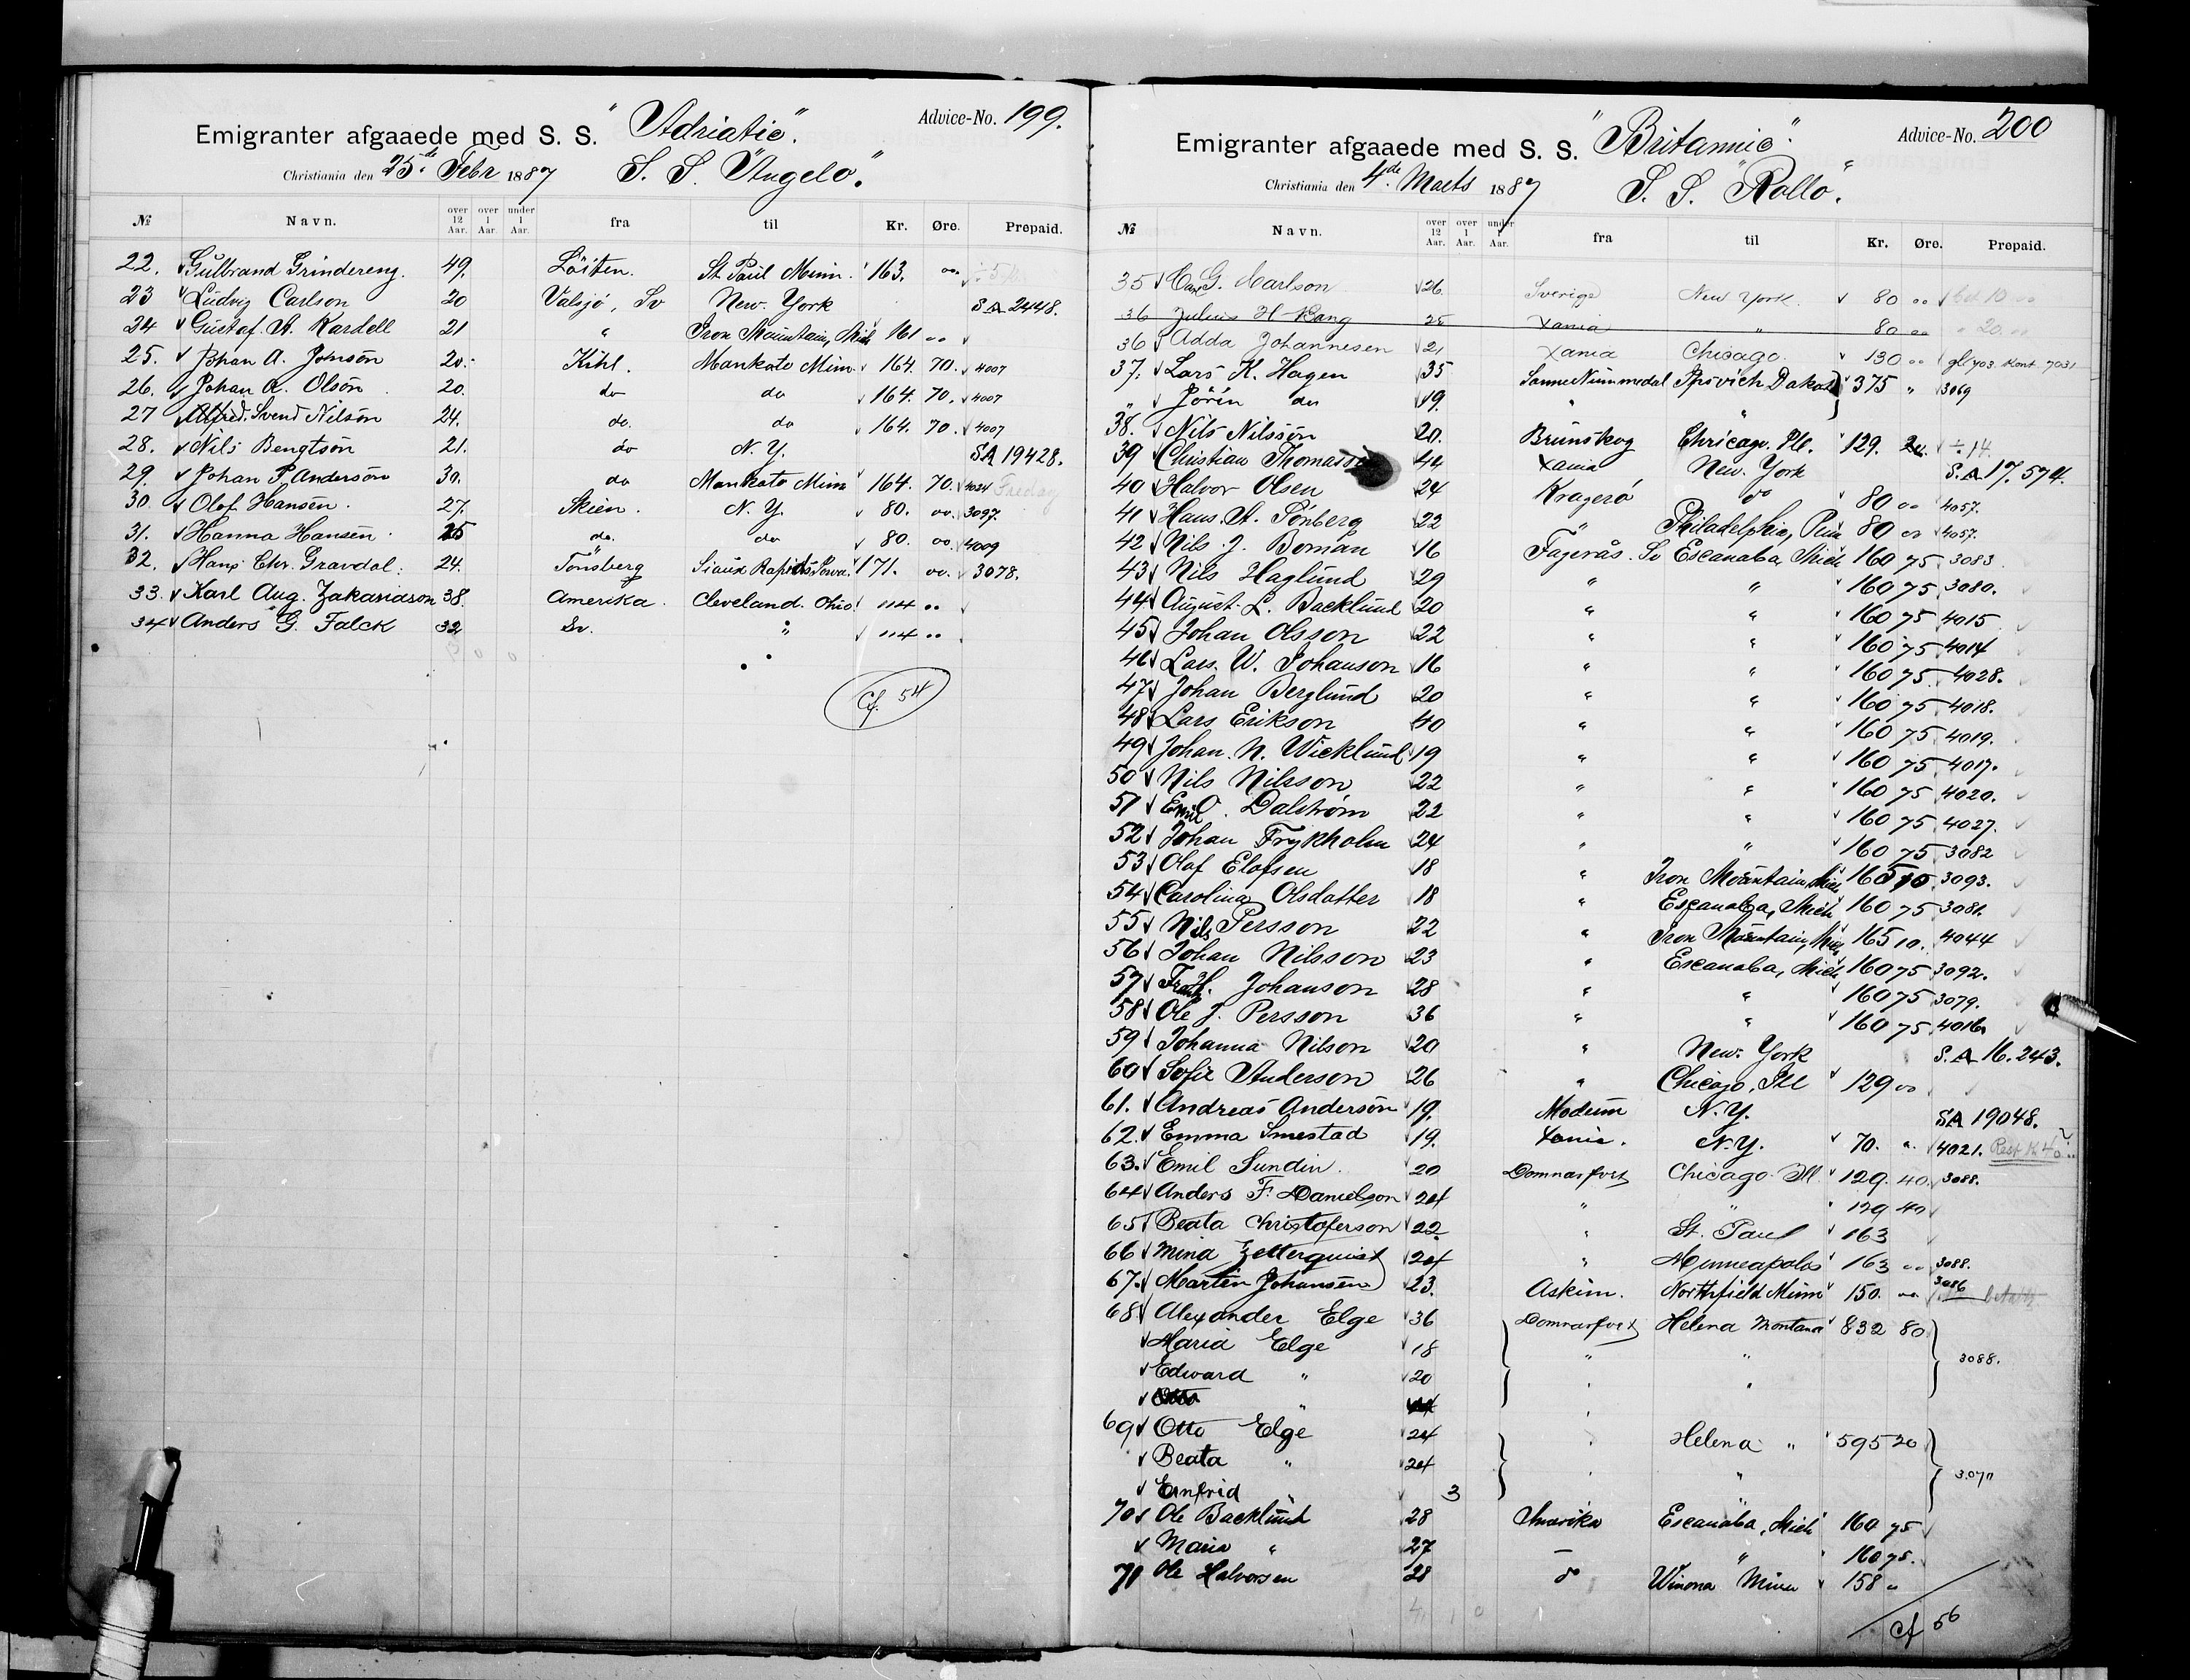 Advice-No. 199.
Emigranter afgaaede med S. S. "Adriatic".
Christiania den 25de Febr 1887 S. S. "Angelo".
№ Navn. over 12 Aar. over 1 Aar. under 1 Aar. fra til Kr. Øre. Prepaid.
22. Gulbrand Grindereng. 49. Löiten. St. Paul Minn. 163. 00.
23 Ludvig Carlson 20 Valsjö, Sv New York SA 2448.
24 Gustaf A. Kardell 21 " Iron Mountain, Mich 161 00
25. Johan A. Jonsön 20. Kihl. Mankato Minn. 164. 70. 4007
26. Johan A. Olsön 20. do do 164. 70. 4007
27 Alfred Svend Nilsön 24. do. do 164. 70. 4007
28. Nils Bengtsön 21. do N. Y. SA 19428.
29. Johan P. Andersön 30. do Mankato Minn 164. 70. 4024
30 Olof Hansen. 27. Skien. N. Y. 80. 00. 3097.
31. Hanna Hansen. 25 do. do 80. 00. 4009
32. Hans Chr. Gravdal. 24. Tönsberg Sioux Rapids, Iowa. 171. 00. 3078.
33. Karl Aug. Zakariason 38. Amerika. Cleveland. Ohio. 114 00
34 Anders G. Falck 32 Sv. " 114 00
Cf. 54
Advice-No. 200
Emigranter afgaaede med S. S. "Britannic".
Christiania den 4de Marts 1887 S. S. "Rollo".
№ Navn. over 12 Aar. over 1 Aar. under 1 Aar. fra til Kr. Øre. Prepaid.
35 G. Carlson 26. Sverige New York. 80 00
36 Julius H Bang 25 Xania " 80 00 " 20.00
36 Adda Johannesen 21 Xania Chicago. 130 00
37. Lars K. Hagen 35 Sanne Nummedal Ipsvich Dakota 375 " 3069
" Jörin do 19. " "
38. Nils Nilssön 20. Brunskog Chicago. Ill. 129. ÷14.
39 Christian Thomassen 44 Xania New York S.A 17.574.
40 Halvor Olsen 24 Kragerö do 80 00 4057.
41 Hans A. Tönberg 22 " Philadelphia, Penn 80 00 4057.
42 Nils J. Boman 16 Fagerås. Sv Escanaba, Mich 160 75 3083.
43 Nils Haglund 29 " " 160 75 3080.
44 August L. Backlund 20 " " 160 75 4015
45 Johan Olsson 22 " " 160 75 4014
46 Lars W. Johanson 16 " " 160 75 4028.
47 Johan Berglund 20 " " 160 75 4018.
48 Lars Erikson 40 " " 160 75 4019.
49 Johan N. Wicklund 19 " " 160 75 4017.
50 Nils Nilsson 22 " " 160 75 4020.
51 Emil O. Dalström 22 " " 160 75 4027.
52 Johan Frykholm 24 " " 160 75 3082
53 Olof Elofsen 18 " Iron Mountain, Mich 165 10 3093.
54 Carolina Olsdatter 18 " Escanaba, Mich 160 75 3081.
55 Nils Persson 22 " Iron Mountain, Mich 165 10. 4044
56 Johan Nilsson 23 " Escanaba, Mich 160 75 3092.
57 Frans H. Johanson 28 " " 160 75 3079.
58 Ole J. Persson 36 " " 160 75 4016
59 Johanna Nilson 20 " New York S.A 16.243.
60 Sofie Anderson 26 " Chicago, Ill 129 00
61. Andreas Andersön 19. Modum N. Y. SA 19048.
62. Emma Smestad 19. Xania. N. Y. 70. " 4021.
63. Emil Sundin. 20 Domnarfvet Chicago Ill 129. 40. 3088.
64 Anders F. Danielson 24 " " 129 40
65 Beata Christoferson 22 " St. Paul 163
66 Mina Zetterquist 24 " Minneapolis 163 00 3088.
67. Martin Johansen 23. Askim. Northfield Minn 150. 00. 3086
68 Alexander Elge 36 Domnarfvet Helena Montana 832 80
Maria Elge 18 " " 3088.
Edward " 20 " "
Otto "
69 Otto Elge 24 " Helena " 595 20
Beata " 24 " "
Emfrid " 3
70 Ole Backlund 28 Amerika Escanaba, Mich 160 75
Maria " 27 — " 160 75.
71 Ole Halvorsen 28 do Winona Minn 158 "
4 1 0
Cf 56